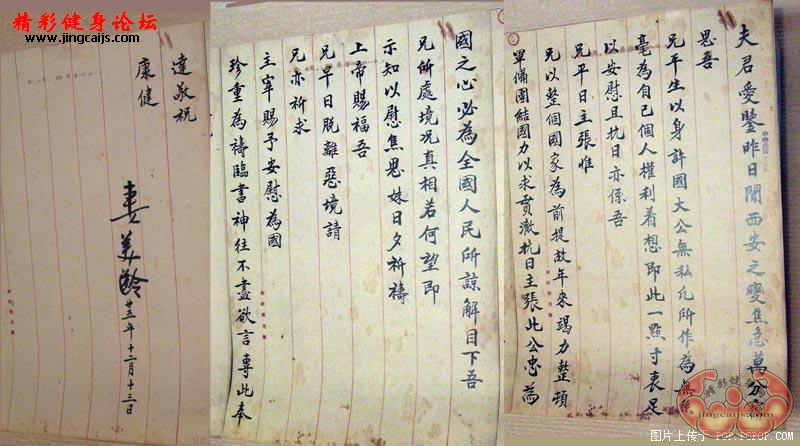 夫君愛鑒昨日聞西安之變焦急萬分
思吾
兄平生以身許國大公無私凡所作為無
毫為自己個人權利着想即此一點寸衷足
以安慰且抗日亦係吾
兄平日主張惟
兄以整個國家為前提故年來竭力整頓
軍備團結國力以求貫澈抗日主張此公忠為
國之心必為全國人民所諒解目下吾
兄所處境況真相若何望即
示知以慰焦思妹日夕祈禱
上帝賜福吾
兄早日脫離惡境請
兄亦祈求
主宰賜予安慰為國
珍重為禱臨書神往不盡欲言專此奉
達敬祝
康健
妻美齡
廿五年十二月十三日
精彩健身论坛
www.jingcaijs.com
jingcaijs.com
图片上传于